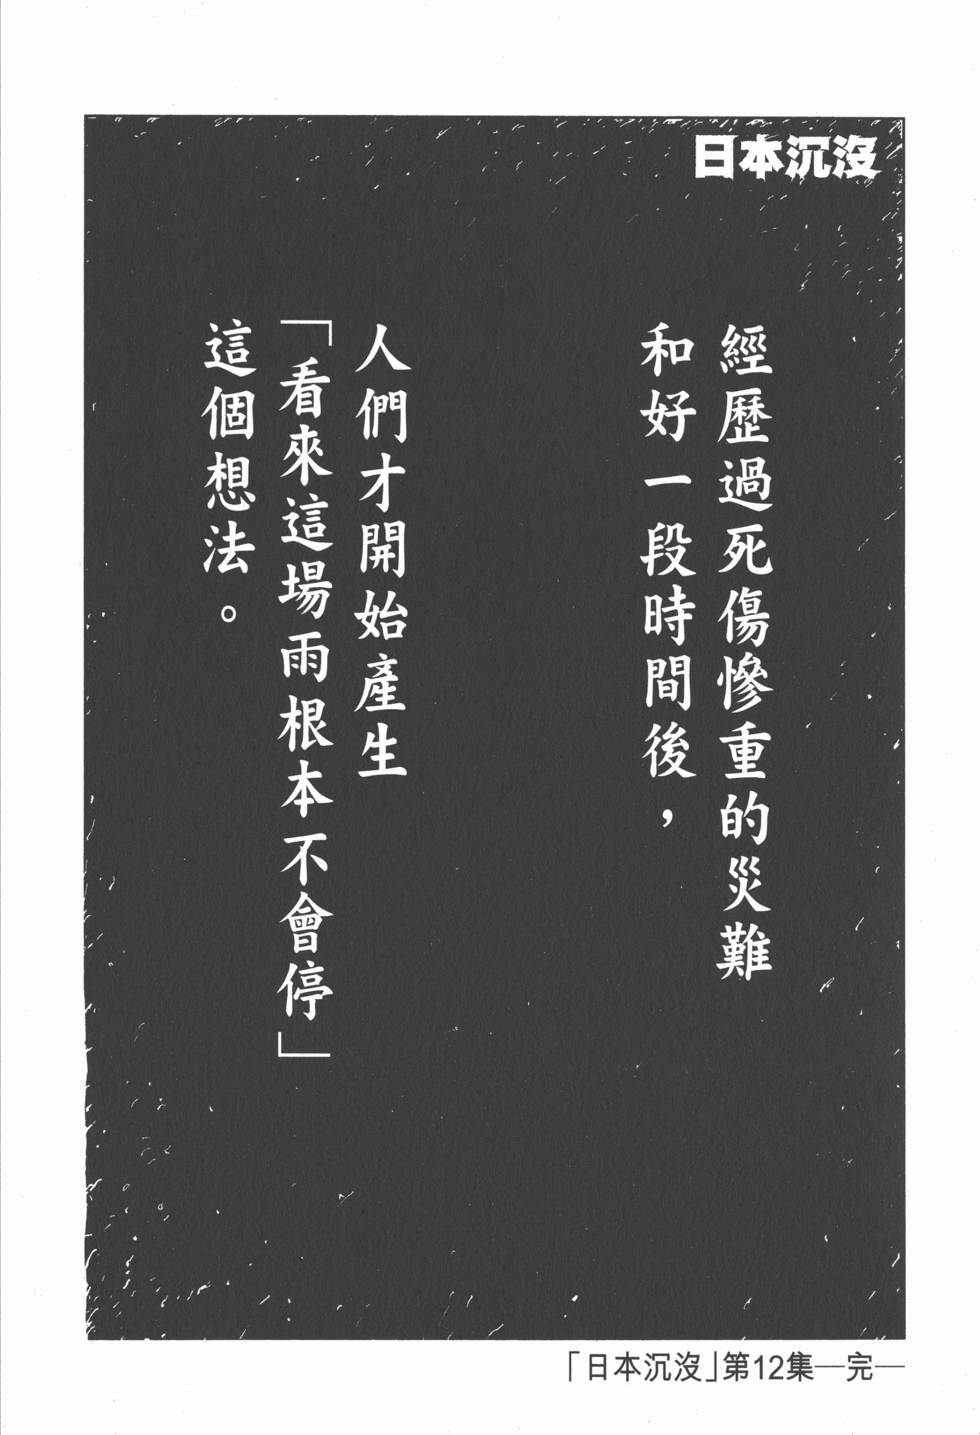 日本沉沒
經歷過死傷慘重的災難
和好一段時間後，
人們才開始產生
「看來這場雨根本不會停」
這個想法。
「日本沉沒」第12集—完—